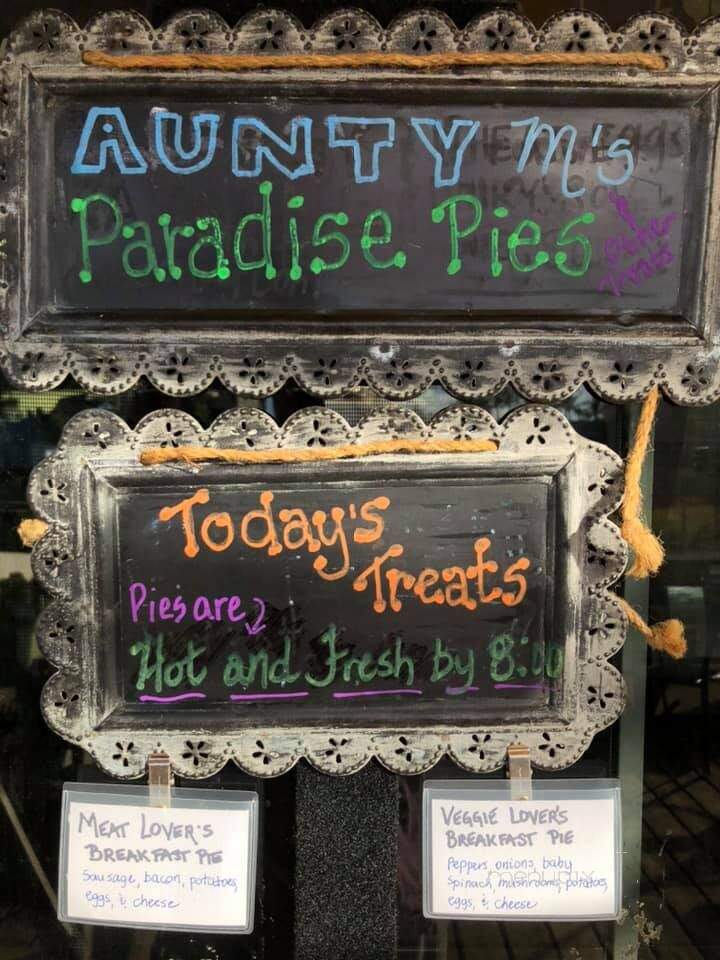 AUNTY M's
Paradise Pies
&
other
treats
Today's
Treats
Pies are
Hot and Fresh by 8:00
MEAT LOVER'S
BREAKFAST PIE
Sausage, bacon, potatoes,
eggs, & cheese
VEGGIE LOVER'S
BREAKFAST PIE
Peppers, onions, baby
Spinach, mushrooms, potatoes,
eggs, & cheese
menupix